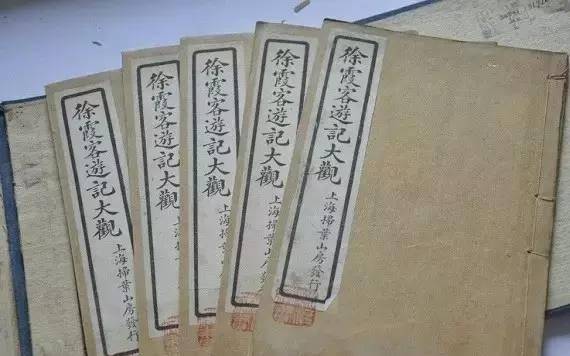 徐霞客遊記大觀
上海掃葉山房發行
徐霞客遊記大觀
上海掃葉山房發行
徐霞客遊記大觀
上海掃葉山房發行
徐霞客遊記大觀
上海掃葉山房發行
徐霞客遊記大觀
上海掃葉山房發行